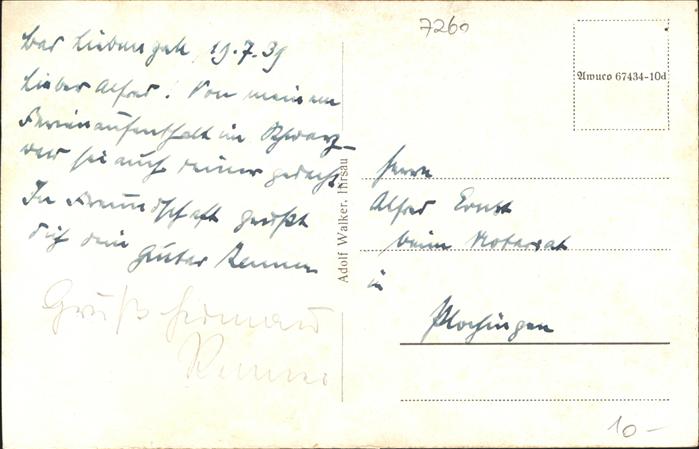 7260
Bad Liebenzell, 19.7.39
Lieber Alfred! Von meinem
Ferienaufenthalt im Schwarz-
wald sei auch deiner gedacht.
In Freundschaft grüßt
dich dein Gustav Renner
Gruß Hermann
Renner
Adolf Walker, Hirsau
Awuco 67434-10d
Herrn
Alfred Ernst
beim Notariat
in
Plochingen
10-